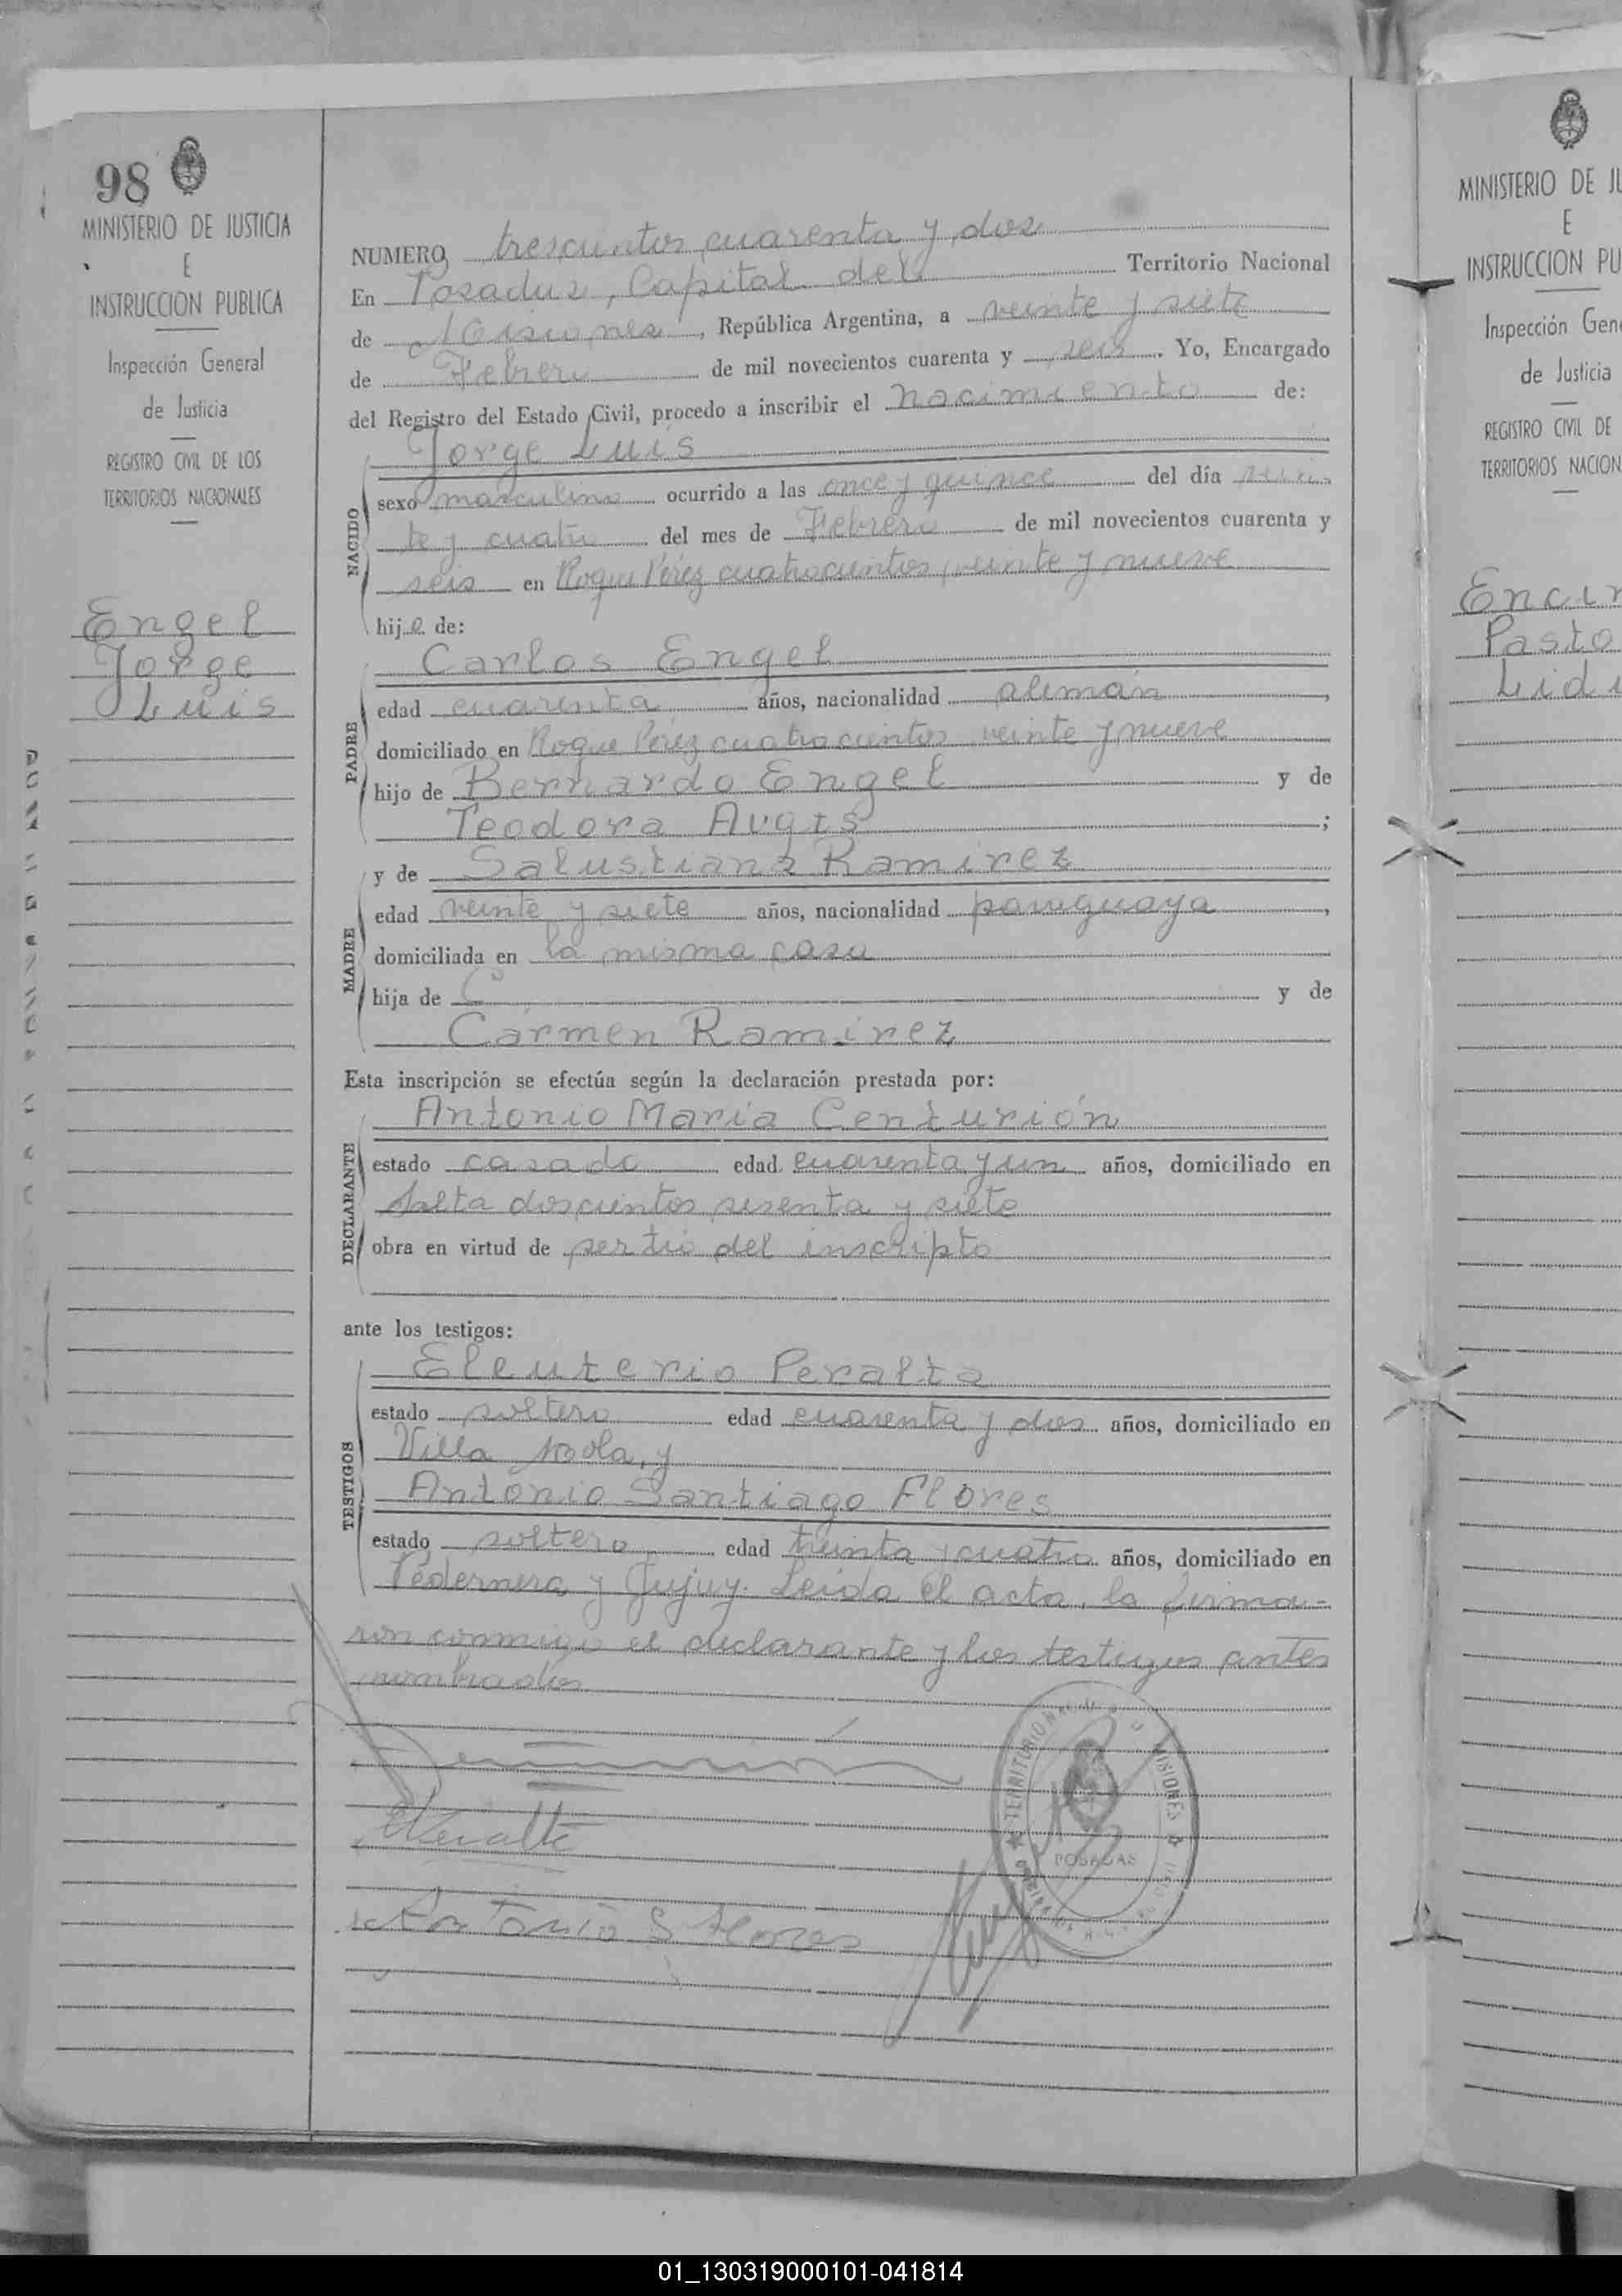 98
MINISTERIO DE JUSTICIA
E
INSTRUCCION PUBLICA
Inspección General
de Justicia
REGISTRO CIVIL DE LOS
TERRITORIOS NACIONALES
Engel
Jorge
Luis
NUMERO trescientos cuarenta y dos
En Posadas, Capital del Territorio Nacional
de Misiones, República Argentina, a veinte y siete
de Febrero de mil novecientos cuarenta y seis. Yo, Encargado
del Registro del Estado Civil, procedo a inscribir el nacimiento de:
Jorge Luis
NACIDO
sexo masculino ocurrido a las once y quince del día vein
te y cuatro del mes de Febrero de mil novecientos cuarenta y
seis en Roque Pérez cuatrocientos veinte y nueve
hijo de:
Carlos Engel
PADRE
edad cuarenta años, nacionalidad alemán,
domiciliado en Roque Pérez cuatrocientos veinte y nueve
hijo de Bernardo Engel y de
Teodora ;
y de Salustiana Ramirez
MADRE
edad veinte y siete años, nacionalidad paraguaya,
domiciliada en la misma casa
hija de y de
Carmen Ramirez
Esta inscripción se efectúa según la declaración prestada por:
Antonio María Centurión
DECLARANTE
estado casado edad cuarenta y un años, domiciliado en
Salta doscientos sesenta y siete
obra en virtud de ser tio del inscripto
ante los testigos:
Eleuterio Peralta
TESTIGOS
estado soltero edad cuarenta y dos años, domiciliado en
Villa Mola, y
Antonio Santiago Flores
estado soltero edad treinta y cuatro años, domiciliado en
Pedernera y Jujuy. Leida el acta, la firma-
ron conmigo el declarante y los testigos antes
nombrados
EPeralta
Antonio S Flores
TERRITORIO MISIONES
POSADAS
MINISTERIO DE JU
E
INSTRUCCION PU
Inspección Gen
de Justicia
REGISTRO CIVIL DE
TERRITORIOS NACION
Encin
Pasto
Lidi
01_130319000101-041814